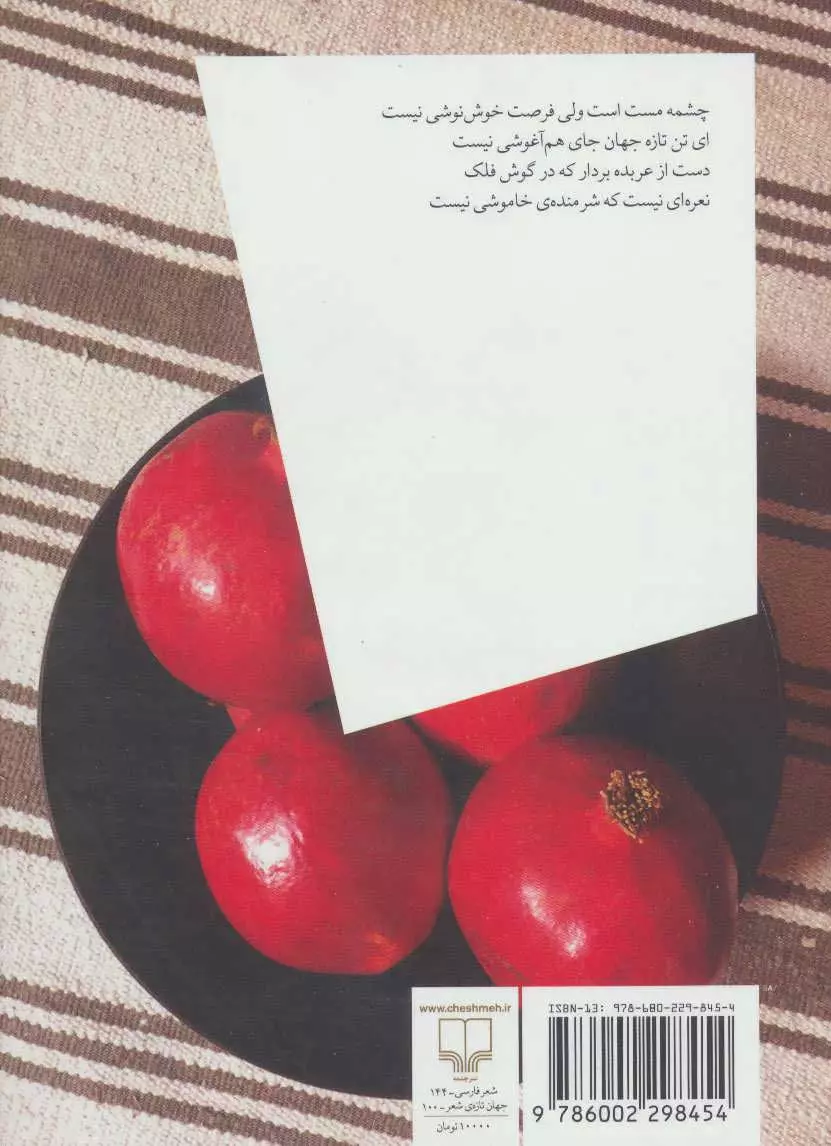 چشمه مست است ولی فرصت خوش‌نوشی نیست
ای تن تازه جهان جای هم‌آغوشی نیست
دست از عربده بردار که در گوش فلک
نعره‌ای نیست که شرمنده‌ی خاموشی نیست
www.cheshmeh.ir
نشرچشمه
شعر فارسی-۱۴۴
جهان تازه‌ی شعر-۱۰۰
۱۰۰۰۰ تومان
ISBN-13: 978-680-229-845-4
9 786002 298454